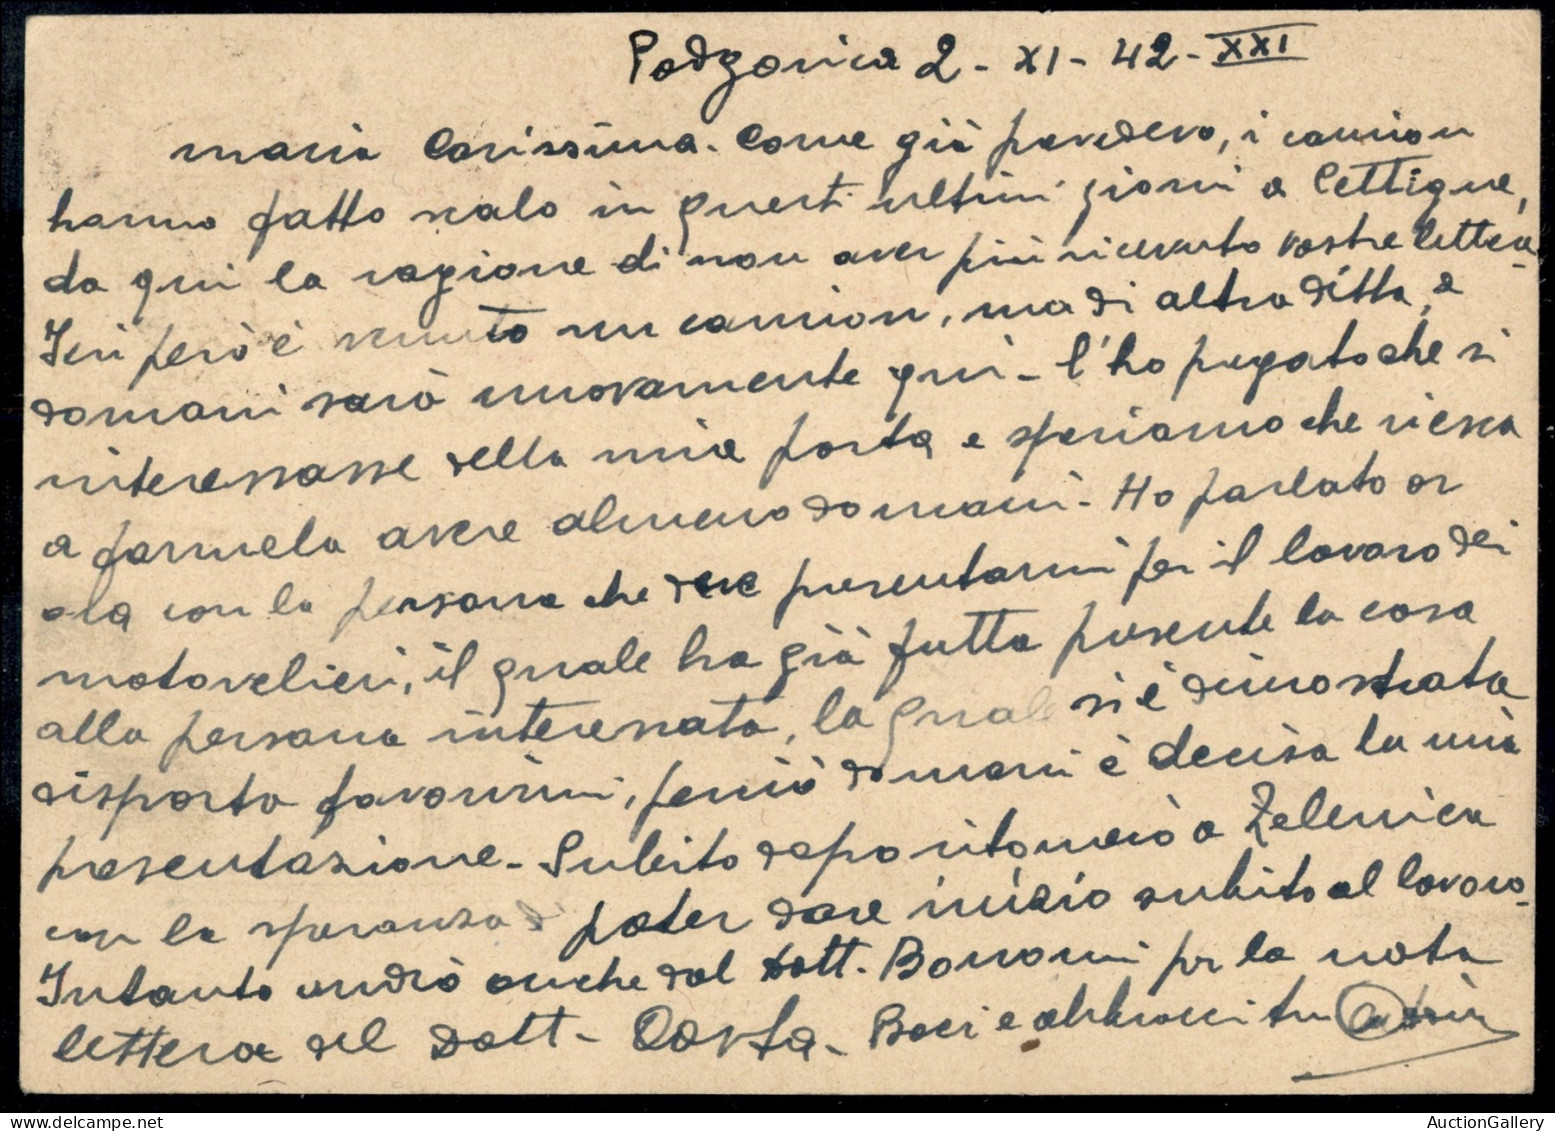 Podgorica 2 - XI - 42 - XXI
Maria Carissima. Come già prevedevo, i camion
hanno fatto scalo in questi ultimi giorni a Cettigne,
da qui la ragione di non aver più ricevuto vostre lettere.
Ieri però è venuto un camion, ma di altra ditta, e
domani sarà nuovamente qui - l'ho pregato che si
interessasse della mia posta e speriamo che riesca
a farmela avere almeno domani. Ho parlato or
ora con la persona che deve presentarmi per il lavoro dei
motovelieri, il quale ha già fatta presente la cosa
alla persona interessata, la quale si è dimostrata
disposta favorirmi, perciò domani è decisa la mia
presentazione. Subito dopo ritornerò a Zelenica
con la speranza di poter dare inizio subito al lavoro.
Intanto andrò anche dal Dott. Bonomi per la nota
lettera del Dott. Costa. Baci e abbracci tu
AuctionGallery